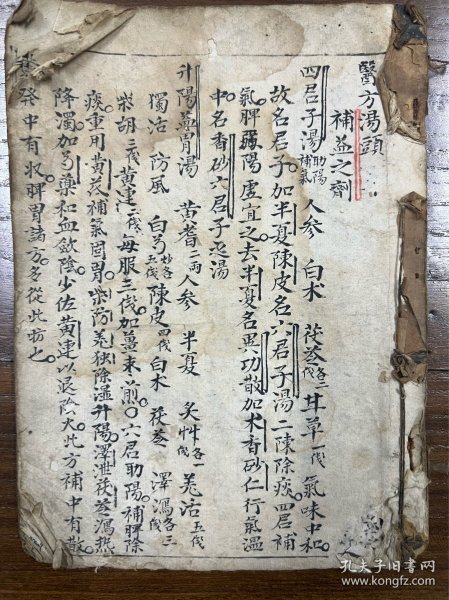 醫方湯頭
補益之劑
四君子湯 助陽補氣 人參 白术 茯苓各二伐 甘草一伐 氣味中和
故名君子加半夏陳皮名六君子湯二陳除痰四君補
氣脾弱陽虛宜之去半夏名異功散加木香砂仁行氣溫
中名香砂六君子煎湯
升陽益胃湯 黃耆二兩 人參 半夏 炙艸各一 羌活五伐
獨活 防風 白芍炒各五伐 陳皮四伐 白术 茯苓 澤瀉各三伐
柴胡三伐 黃連二伐 每服三伐加薑棗煎○六君助陽補脾除
痰重用黃耆補氣固胃柴防羌独除湿升陽澤泄茯苓瀉热
降濁加芍藥和血斂陰少佐黃連以退陰火此方補中有散
發中有收脾胃諸方多從此昉之
孔夫子旧书网
www.kongfz.com